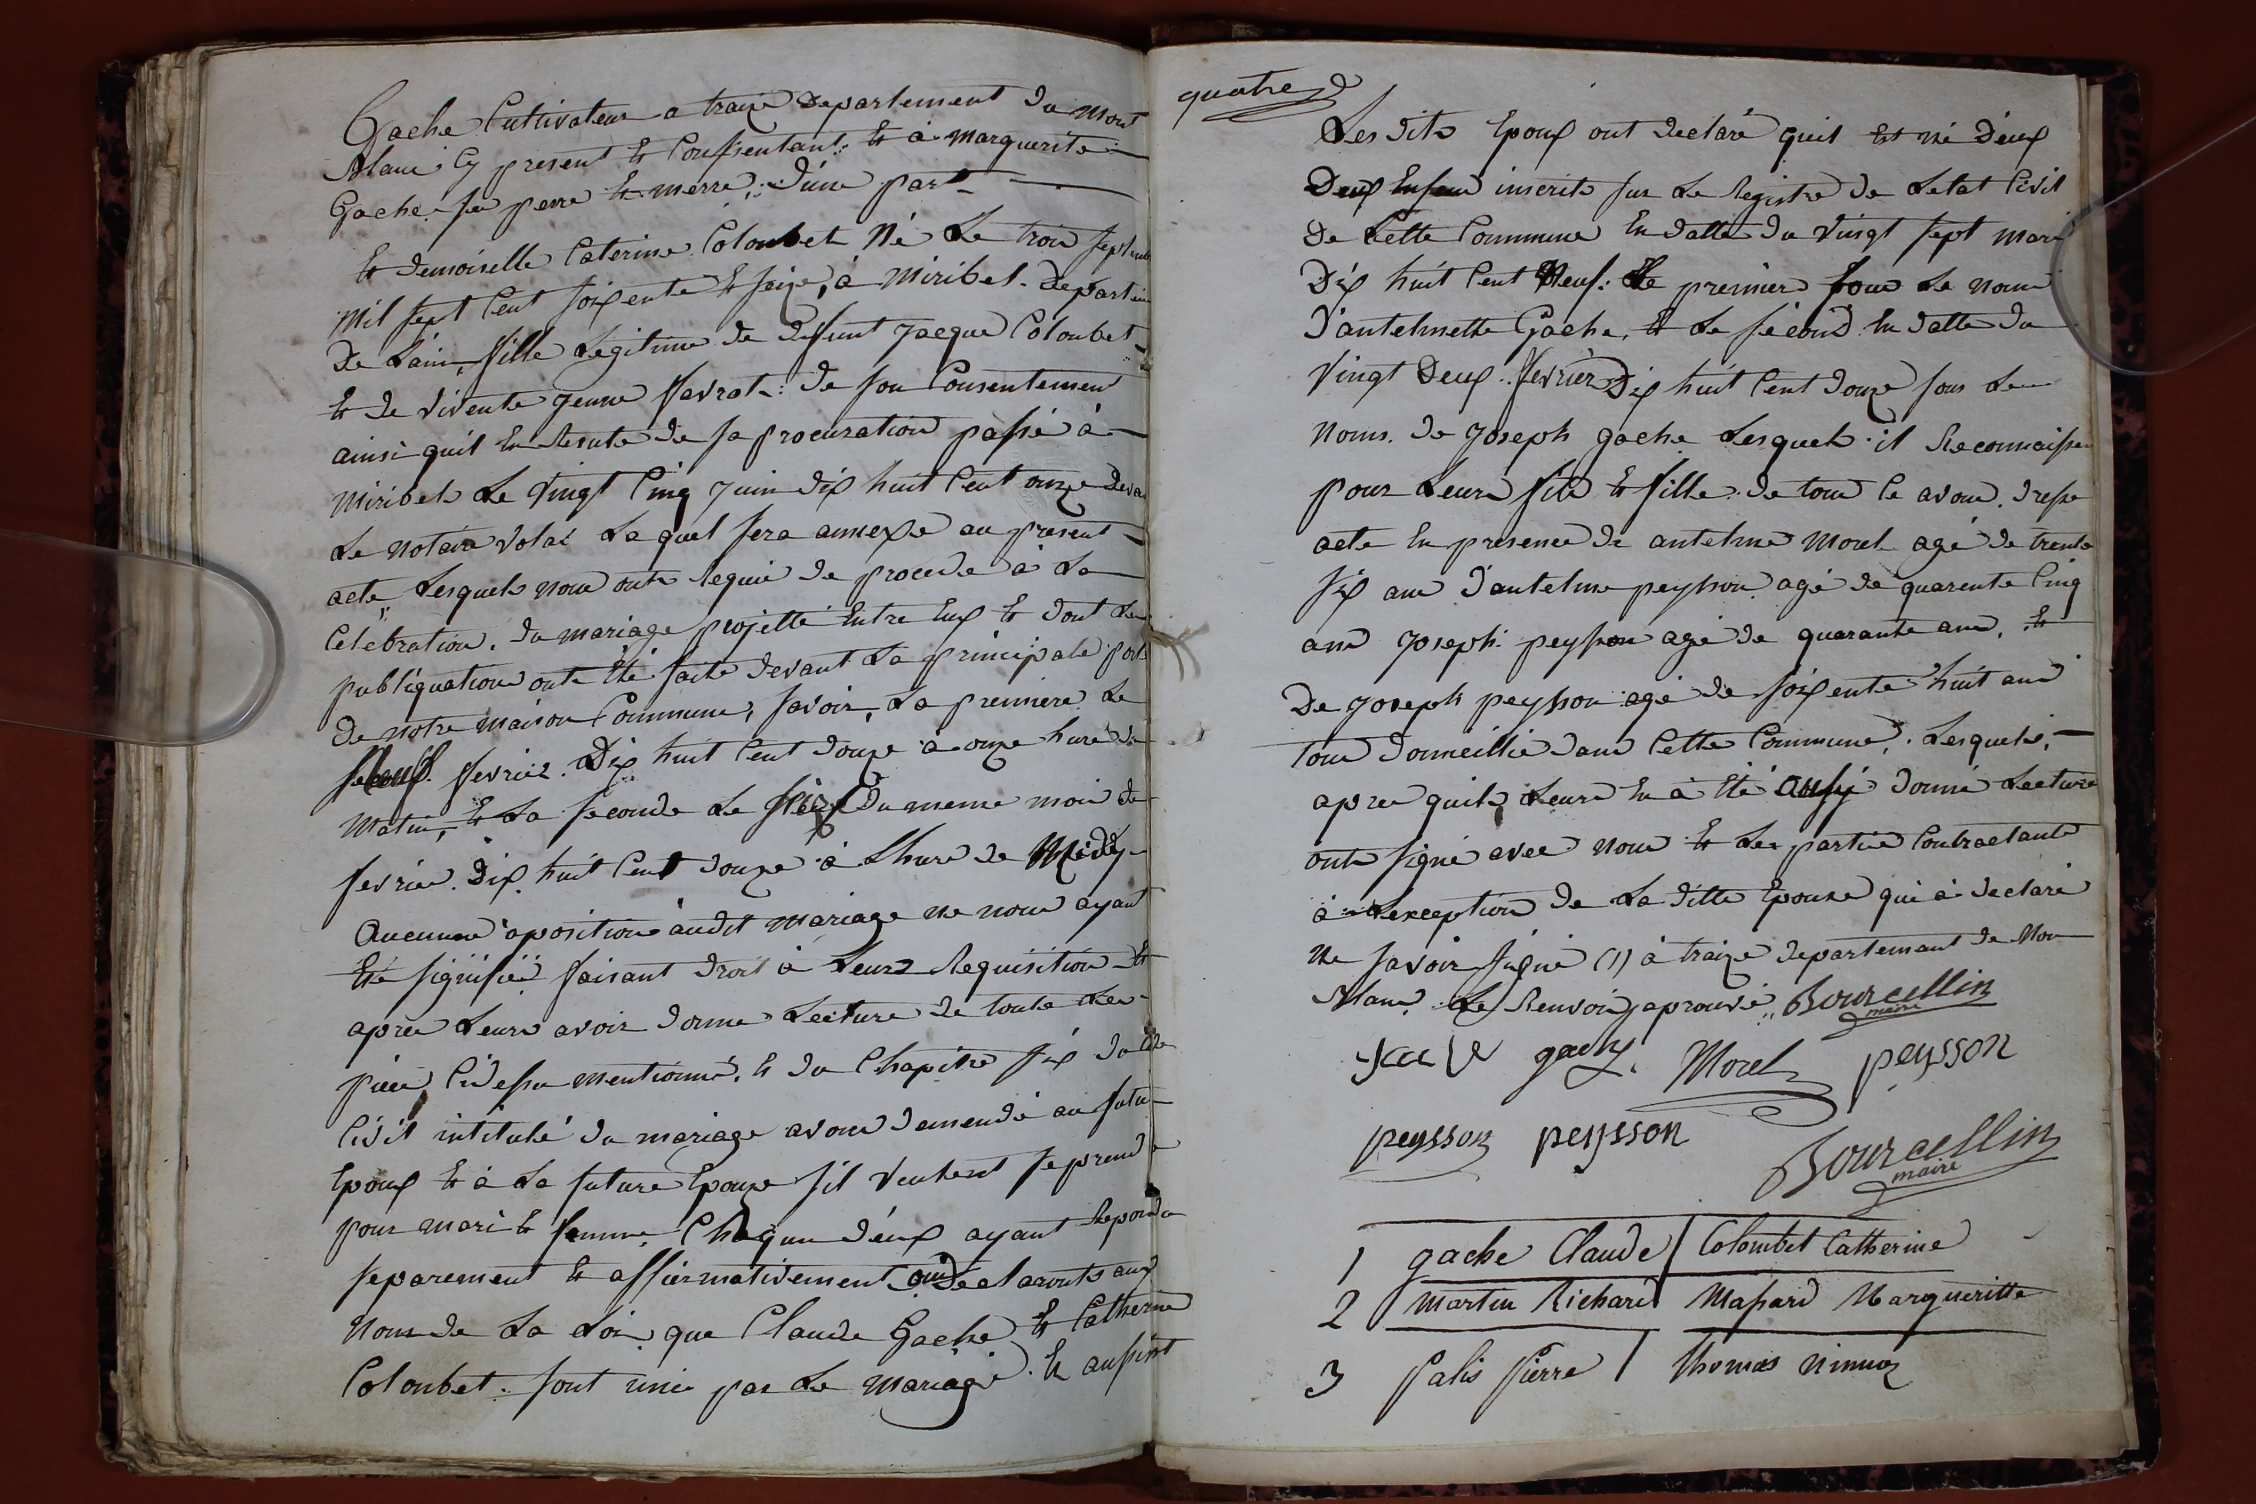 Gache Cultivateur a traize Departement du mont
Blanc Cy present et Conssentant; et à marguerite
Gache. feu perre et merre; d'une part
Et demoiselle Caterine Coloubet Né Le trois septembre
mil sept Cent soixente et seize, à Miribel. Departem
De Lain, fille Legitime de defunt Jacque Coloubet
et de vivente Jenne favrat: de son Consentement
ainsi quil En Resute de sa procuration passé à
Miribel Le vingt Cinq Juin dix huit Cent onze devan
Le notaire Le quel sera annexé au present
acte, Lesquels nous onts Requis de procede à La
Célébration. du mariage projetté Entre Eux et dont Les
publiquations onts Eté faite devant La principale porte
de notre maison Commune, savoir, La premiere Le
fevrier. Dix huit Cent douze à onze hure du
matin, et La seconde Le du meme mois de
fevrier. Dix huit Cent douze à Lhure de Midy
Aucunne oposition audit mariage ne nous ayant
Eté signifiée faisant droit à Leurs Requisition et
apres Leurs avoir donne Lecture de toute Les
piece Cidessu mentionné. et du Chapitre six du
Civil intitulé du mariage avons demendé au futur
Epoux et à La future Epouze sil veulent se prendre
pour mari et femme. Chaqun d'eux ayant Repondu
separement et affirmativement declaronts aux
Nom de La Loi, que Claude Gache et Catherine
Coloubet. sont unis par Le mariage. Et aussitot
quatre
Les dits Epoux ont declaré quil Est né d'eux
Deux Enfans inscrits sur Le Registre de Letat Civil
De Cette Commune En datte du vingt sept mars
Dix huit Cent Neuf. Le premier sous Le nom
D'antelmette Gache, et Le second En datte du
vingt Deux. fevrier Dix huit Cent douze sous Le
Noms. de Joseph gache Lesquels il Reconnaisse
pour Leurs fils et fille. de tous Ce avons. dresse
acte En presence de antelme Morel agé de trente
six ans d'antelme peysson agé de quarente Cinq
ans Joseph peysson agé de quarante ans, et
De Joseph peysson agé de soixente huit ans
tous domeillié dans Cette Commune. Lesquels,
apres quils Leurs En à Eté donné Lecture
onts signé avec nous et Les partie Contractante
à Lexception de La ditte Epouze qui à declaré
ne savoir signé (1) à traize departemant de Mon
Blanc. Le Renvoiy aprouvé. Bourcellin
maire
gache. Morel peysson
peysson peysson Bourcellin
maire
1 gache Claude / Colombet Catherine
2 Martin Richard Massard Margueritte
3 Palis Pierre / Thomas